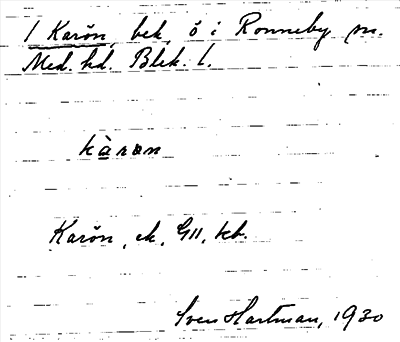 1 Karön, bek. ö i Ronneby sn.
Med. hd. Blek. l.
kàrøn
Karön, ek. G11, kb.
Sven Hartman, 1930